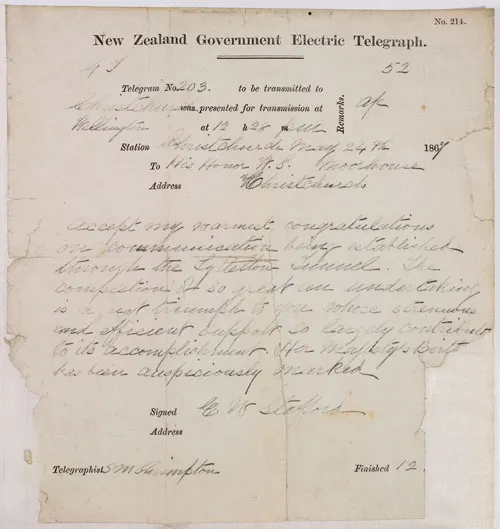 No. 214.
New Zealand Government Electric Telegraph.
52
Telegram No. 203. to be transmitted to
Christchurch was presented for transmission at
Wellington at 12 h 28 m pm
Remarks.
Station Christchurch May 24th 1867
To His Honor W. S. Moorhouse
Address Christchurch
Accept my warmest congratulations
on communication being established
through the Lyttelton Tunnel. The
completion of so great an undertaking
is a great triumph to you whose strenuous
and efficient support so largely contribut
to its accomplishment Her Majestys Birth
has been auspiciously marked
Signed E W Stafford
Address
Telegraphist Shrimpton
Finished 12.